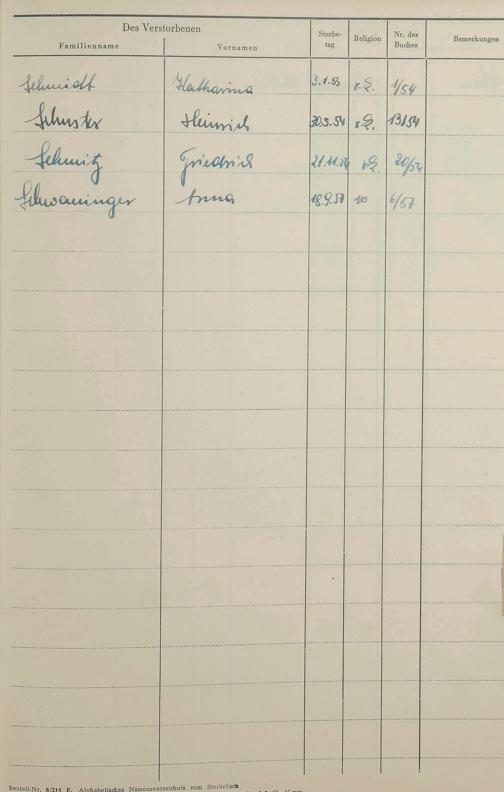 Des Verstorbenen
Familienname Vornamen Sterbe- tag Religion Nr. des Buches Bemerkungen
Schmidt Katharina 3.1.53 1/54
Schuster Heinrich 30.3.54 13/54
Schmitz Friedrich 21.11.54 20/54
Schwaninger Anna 18.9.57 6/57
Bestell-Nr. 6/215 E. Alphabetisches Namensverzeichnis zum Sterbebuch